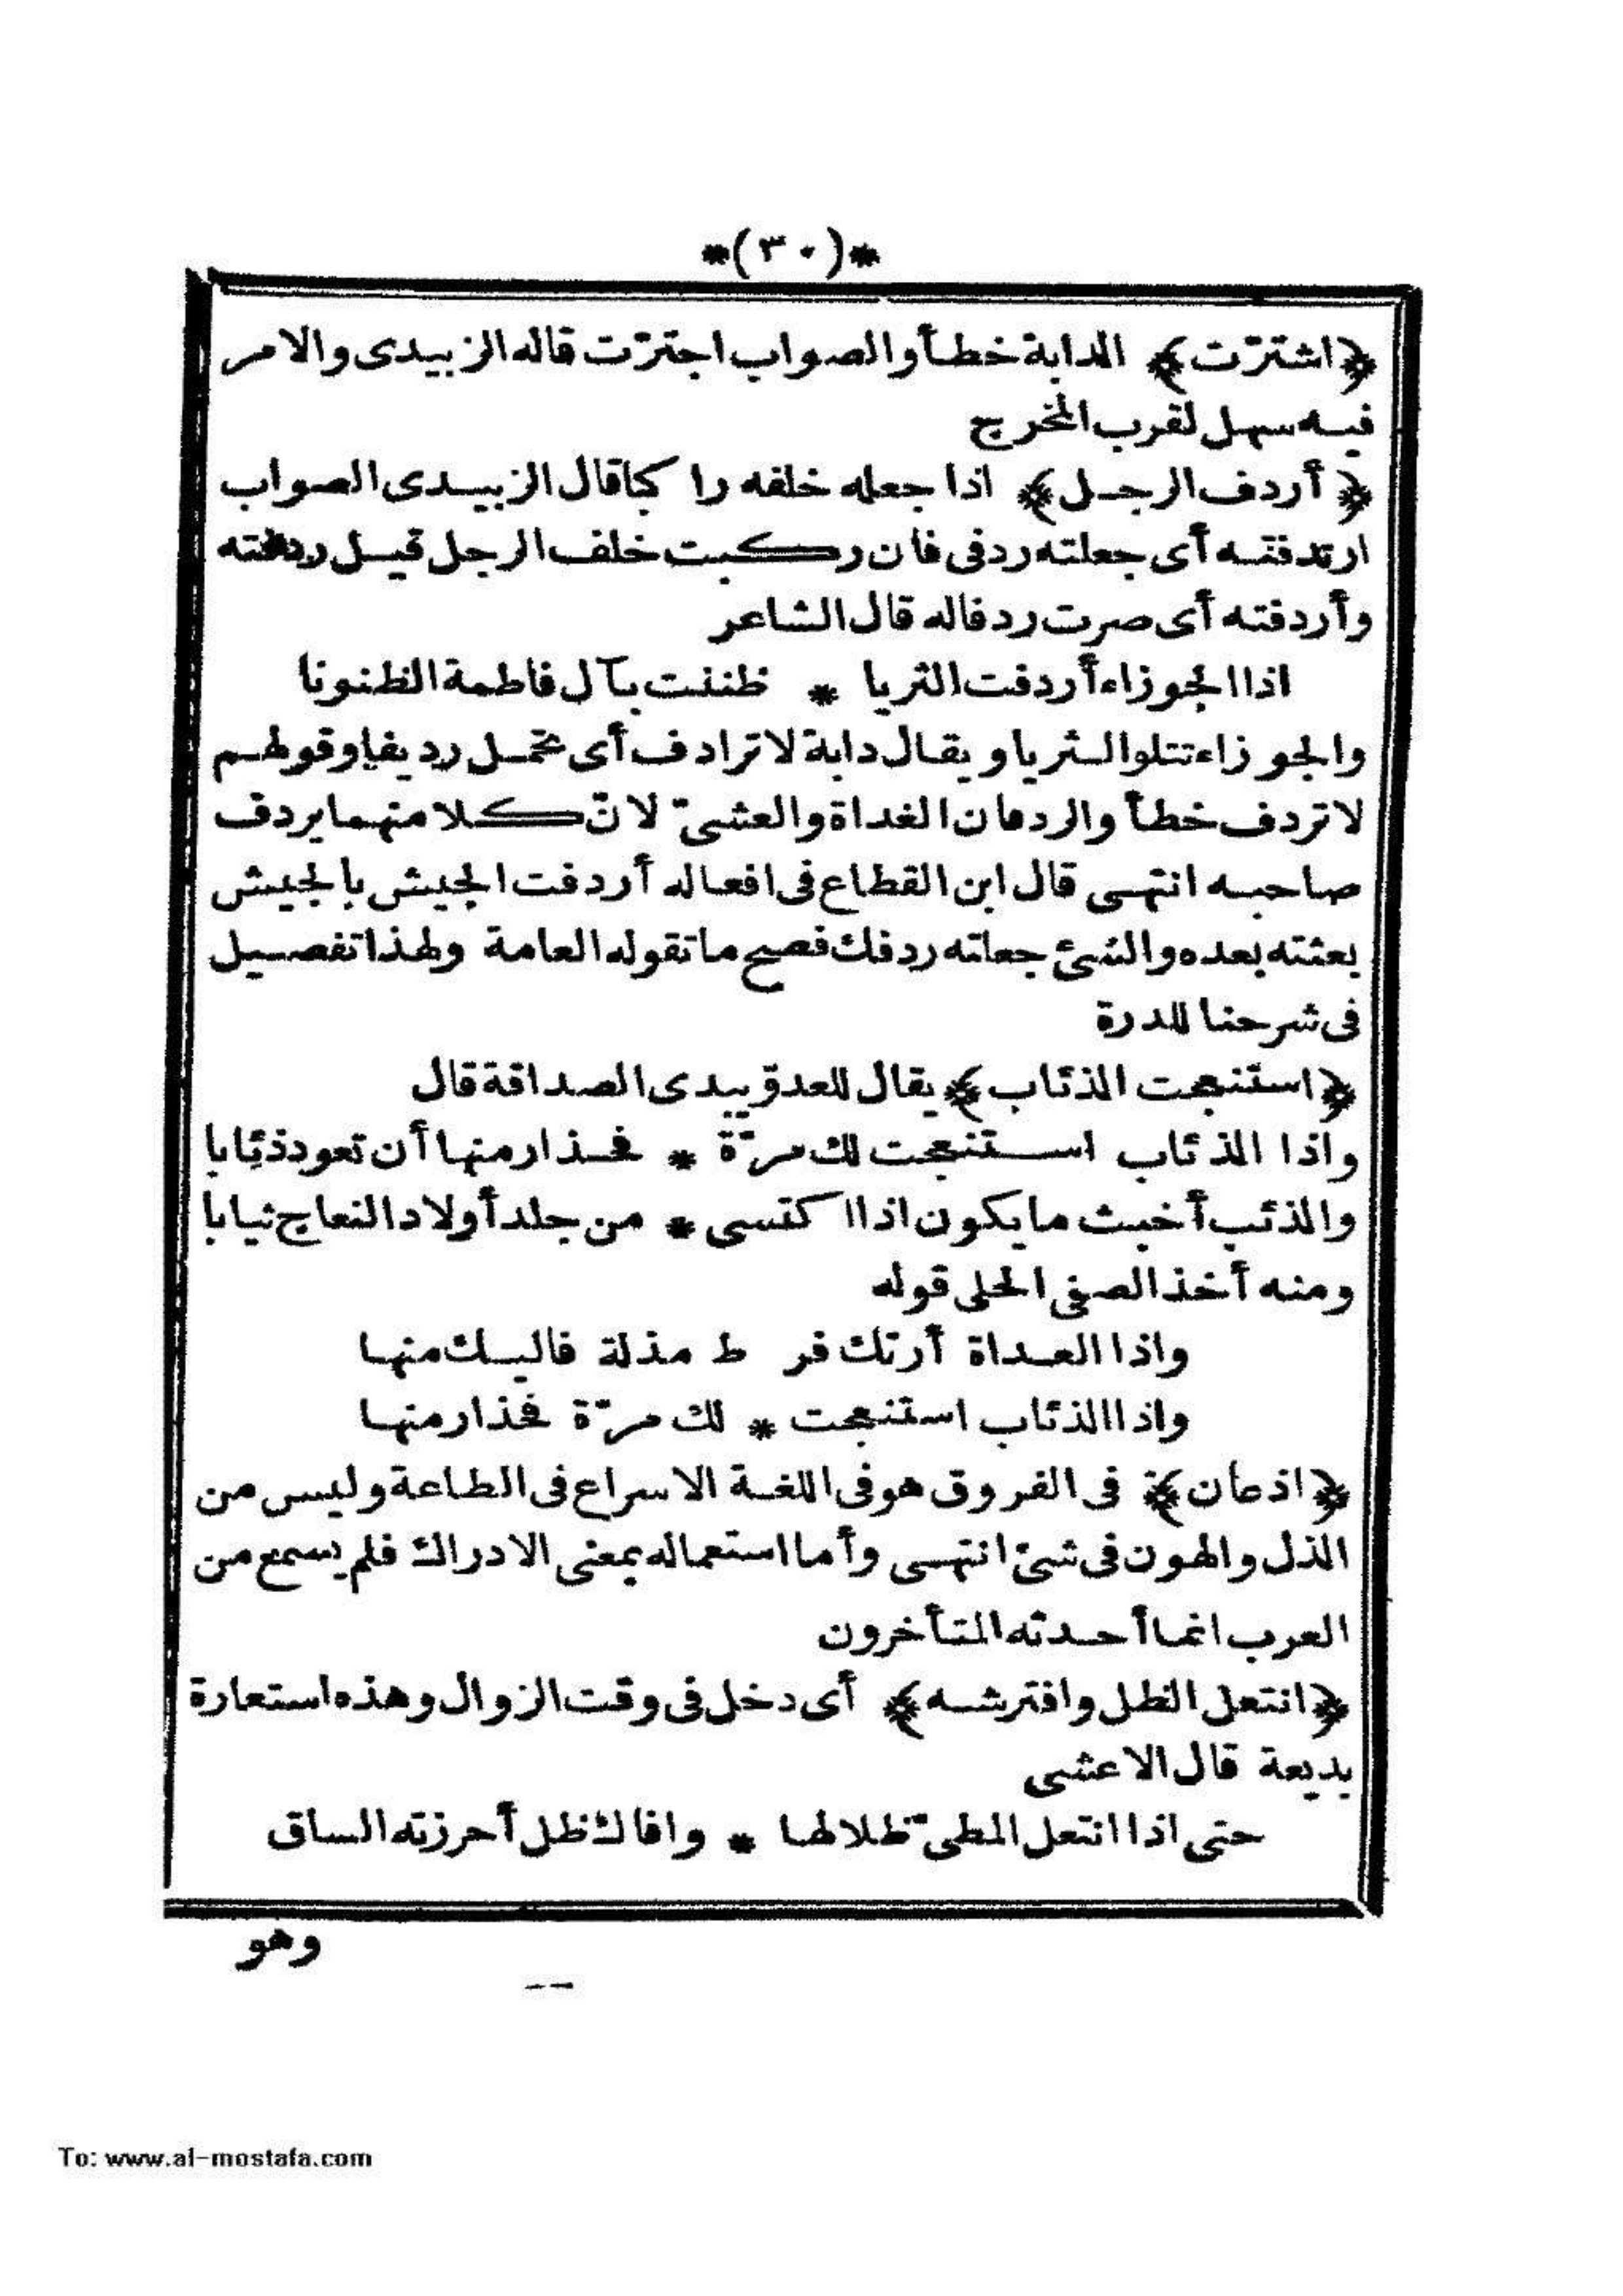 *(٣٠)*
﴿اشترّت﴾ الدابة خطأ والصواب اجترّت قاله الزبيدى والامر
فيه سهل لقرب المخرج
﴿أردف الرجل﴾ اذا جعله خلفه را كبا قال الزبيدى الصواب
ارتدفته أى جعلته ردفى فان ركبت خلف الرجل قيل ردفته
وأردفته أى صرت ردفا له قال الشاعر
اذا الجوزاء أردفت الثريا * ظننت بآل فاطمة الظنونا
والجوزاء تتلو الثريا ويقال دابة لا ترادف أى تحمل رديفا وقولهم
لا تردف خطأ والردفان الغداة والعشىّ لانّ كلا منهما يردف
صاحبه انتهى قال ابن القطاع فى افعاله أردفت الجيش بالجيش
بعثته بعده والشئ جعلته ردفك فصح ما تقوله العامة ولهذا تفصيل
فى شرحنا للدرة
﴿استنعجت الذئاب﴾ يقال للعدوّ يبدى الصداقة قال
واذا الذئاب استنعجت لك مرّة * فحذار منها أن تعود ذئابا
والذئب أخبث ما يكون اذا اكتسى * من جلد أولاد النعاج ثيابا
ومنه أخذ الصفى الحلى قوله
واذا العداة أرتك فر ط مذلة فاليك منها
واذا الذئاب استنعجت * لك مرّة فحذار منها
﴿اذعان﴾ فى الفروق هو فى اللغة الاسراع فى الطاعة وليس من
الذل والهون فى شئ انتهى وأما استعماله بمعنى الادراك فلم يسمع من
العرب انما أحدثه المتأخرون
﴿انتعل الظل وافترشه﴾ أى دخل فى وقت الزوال وهذه استعارة
بديعة قال الاعشى
حتى اذا انتعل المطىّ ظلالها * وافاك ظل أحرزته الساق
وهو
To: www.al-mostafa.com